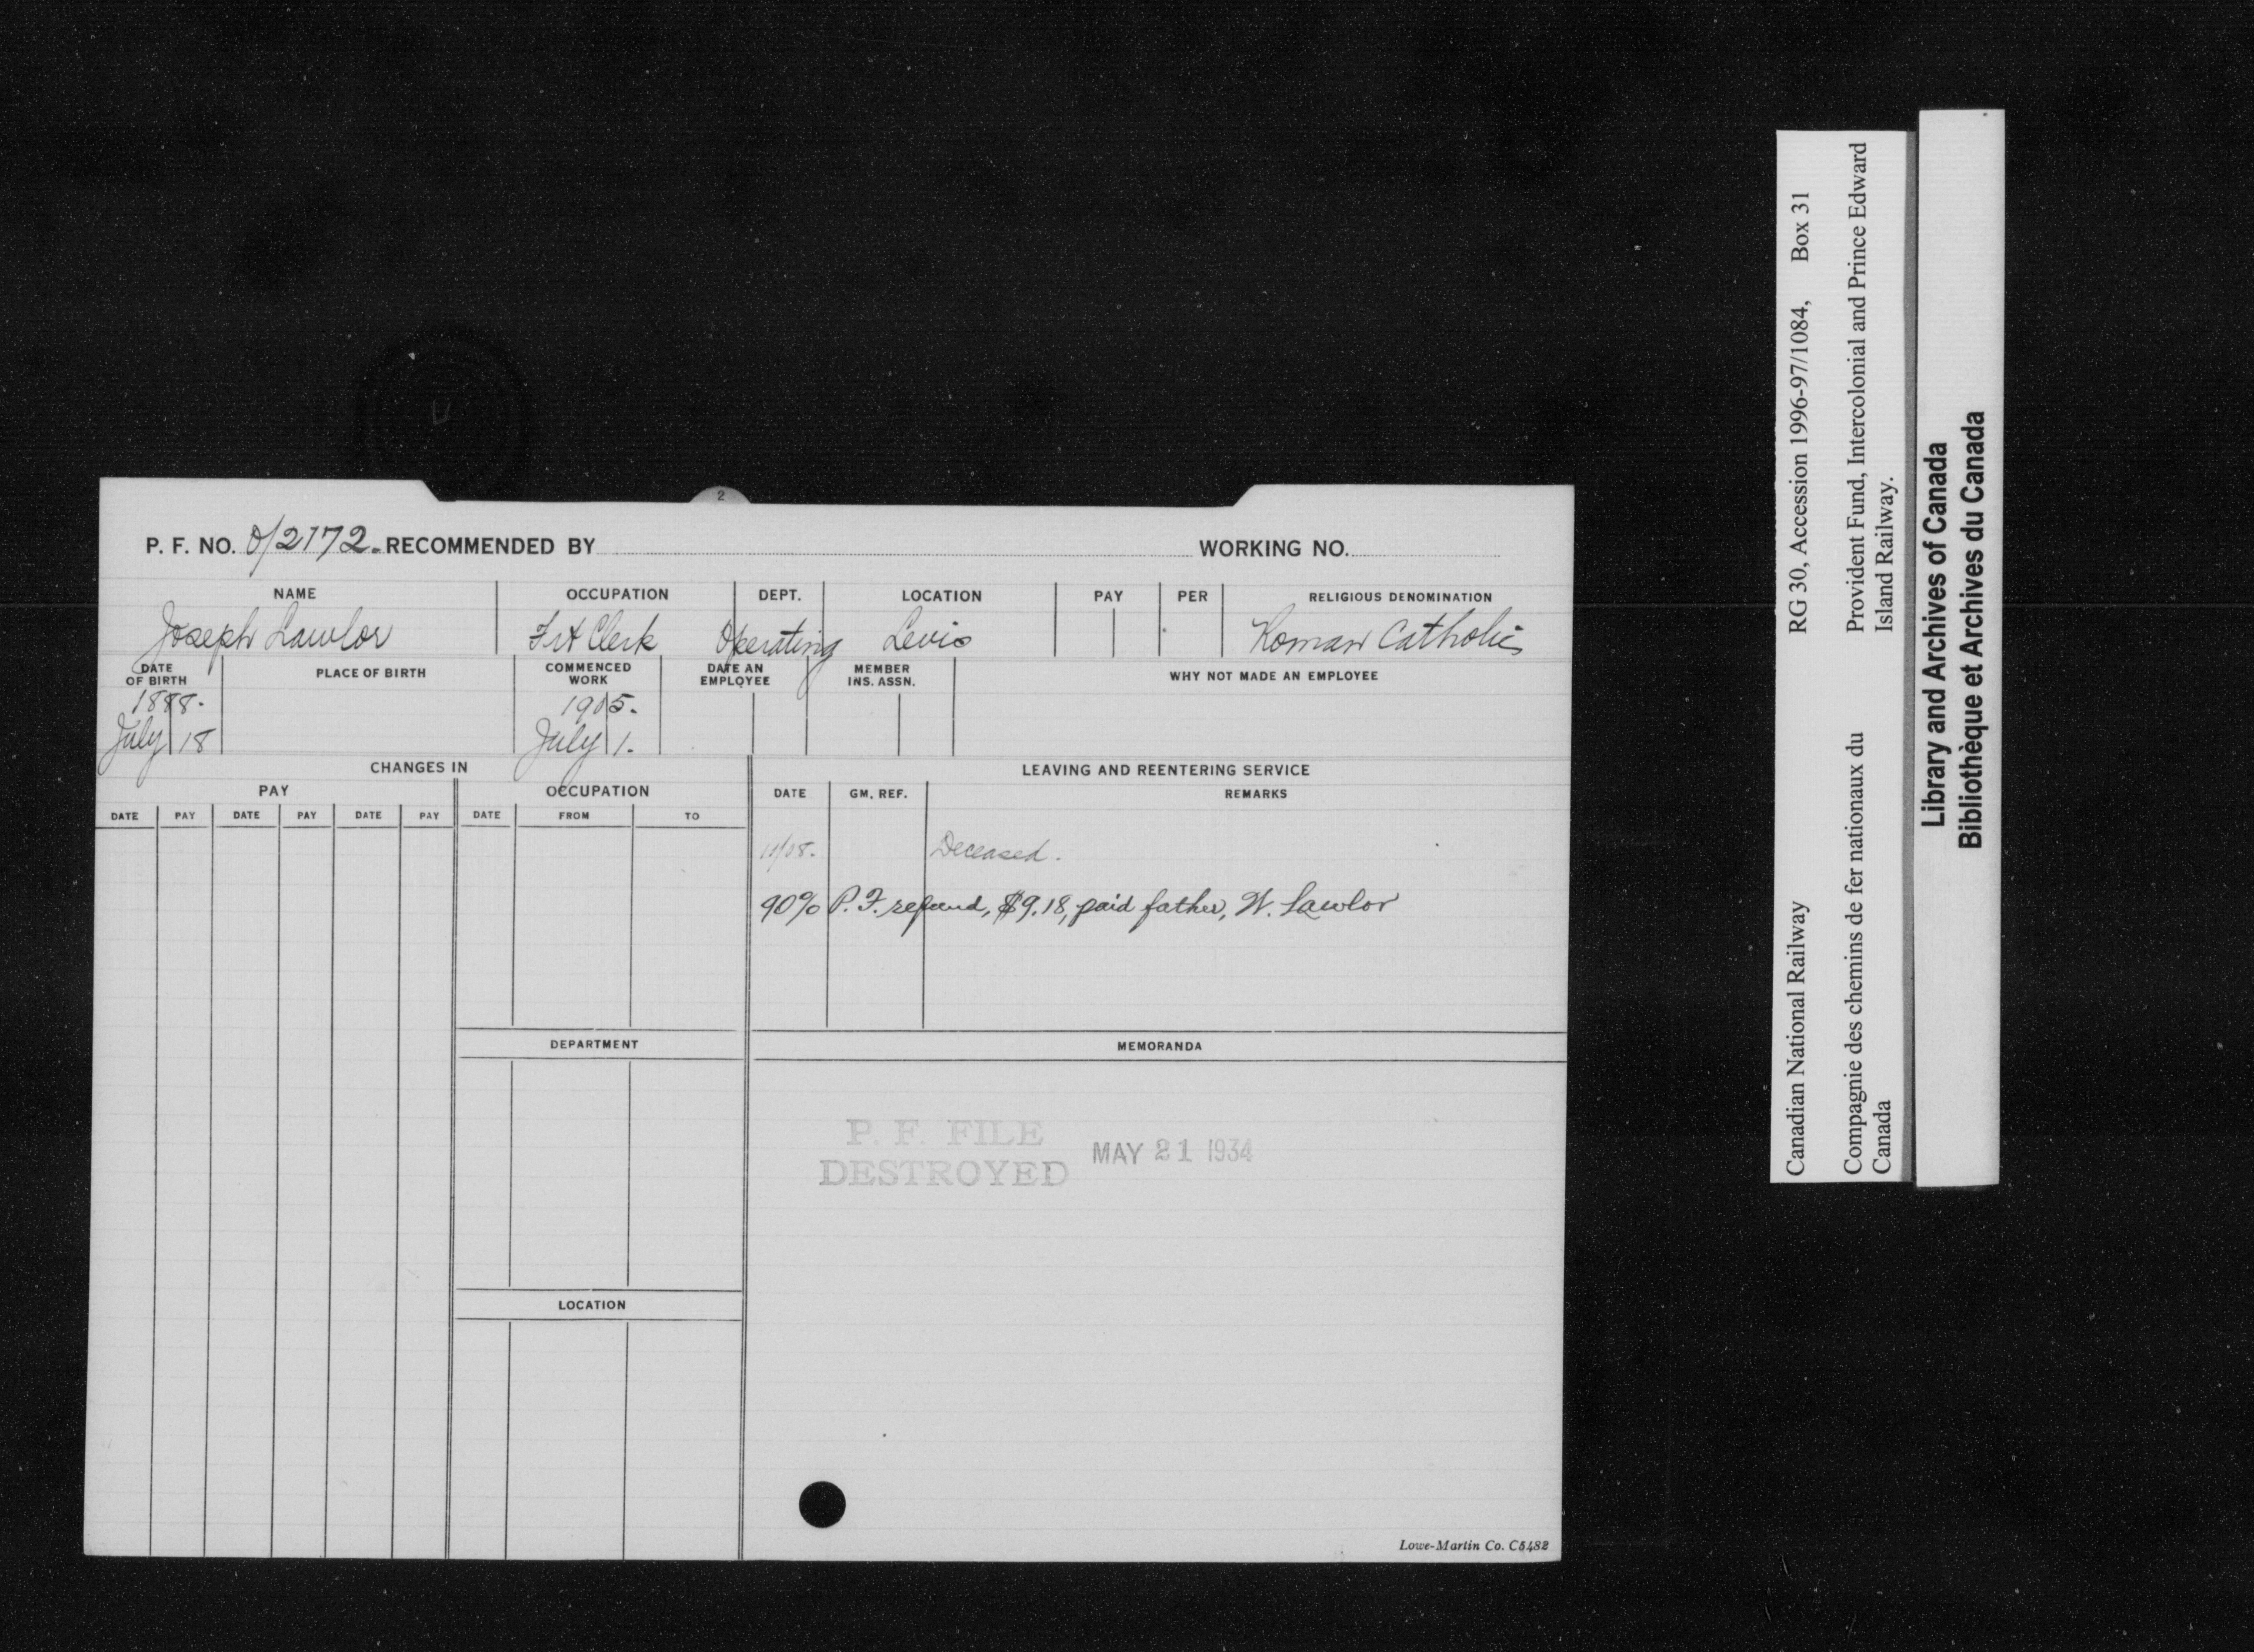 2
P. F. NO. 0/2172. RECOMMENDED BY WORKING NO.
NAME OCCUPATION DEPT. LOCATION PAY PER RELIGIOUS DENOMINATION
Joseph Lawlor Frt Clerk Operating Levis Roman Catholic
DATE OF BIRTH PLACE OF BIRTH COMMENCED WORK DATE AN EMPLOYEE MEMBER INS. ASSN. WHY NOT MADE AN EMPLOYEE
1888. 1905.
July 18 July 1.
CHANGES IN LEAVING AND REENTERING SERVICE
PAY OCCUPATION DATE GM. REF. REMARKS
DATE PAY DATE PAY DATE PAY DATE FROM TO
Deceased.
90% P. F. refund, $9.18, paid father, W. Lawlor
DEPARTMENT MEMORANDA
P. F. FILE
DESTROYED MAY 21 1934
LOCATION
Lowe-Martin Co. C5482
Canadian National Railway RG 30, Accession 1996-97/1084, Box 31
Compagnie des chemins de fer nationaux du Provident Fund, Intercolonial and Prince Edward
Canada Island Railway.
Library and Archives of Canada
Bibliothèque et Archives du Canada